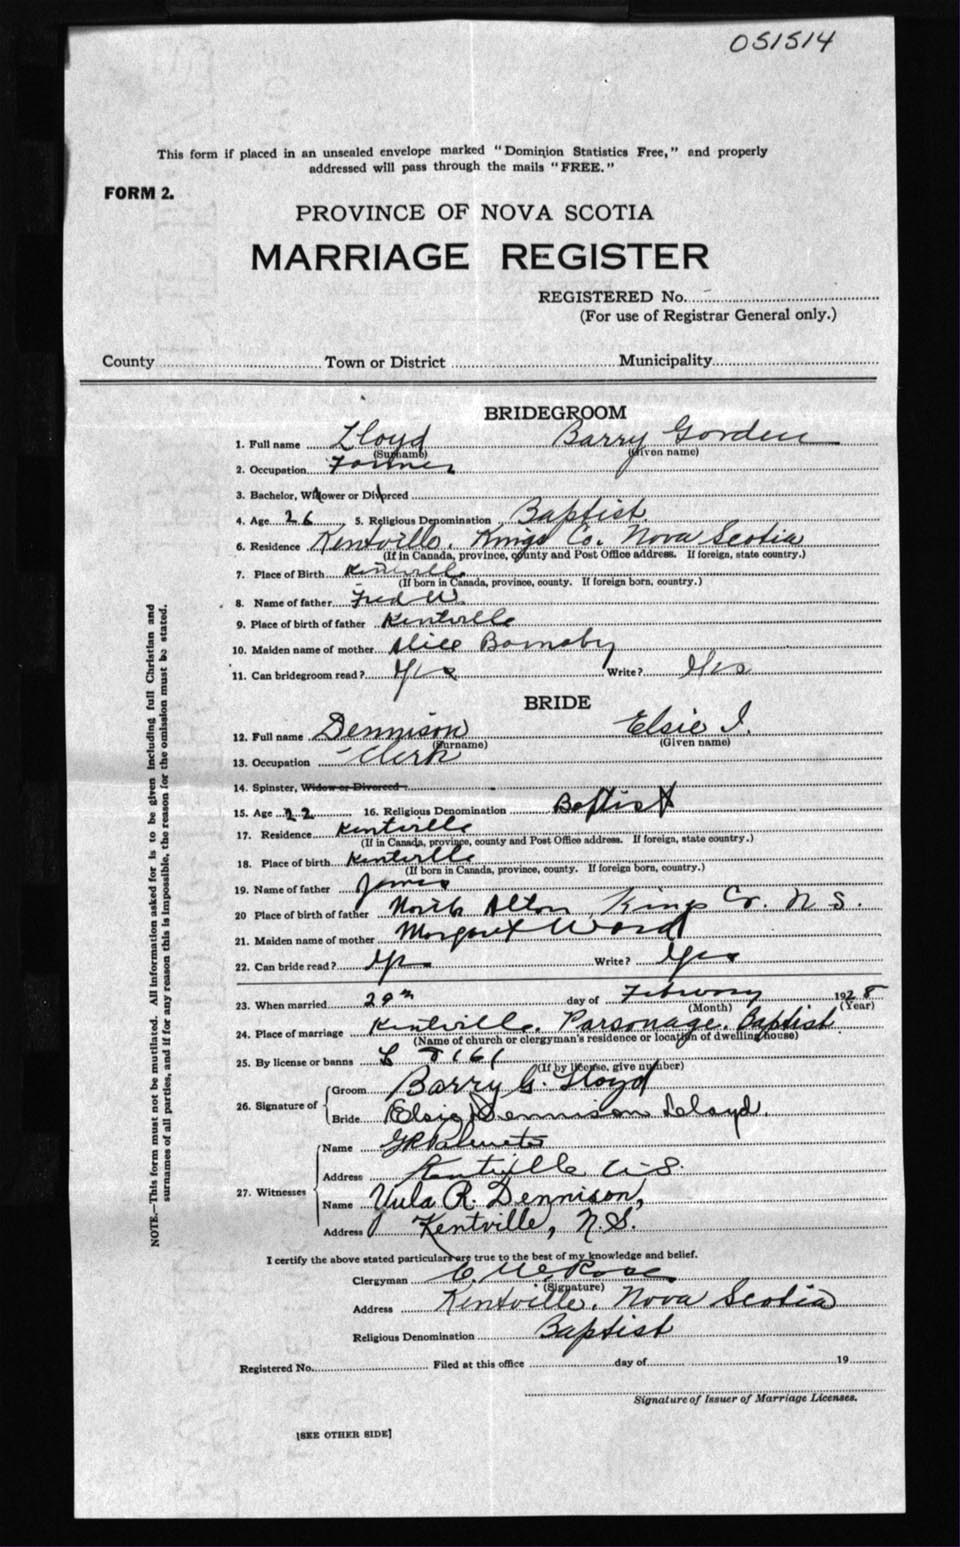 051514
This form if placed in an unsealed envelope marked "Dominion Statistics Free," and properly
addressed will pass through the mails "FREE."
FORM 2.
PROVINCE OF NOVA SCOTIA
MARRIAGE REGISTER
REGISTERED No.
(For use of Registrar General only.)
County Town or District Municipality
BRIDEGROOM
1. Full name Lloyd Barry Gorden
(Surname) (Given name)
2. Occupation Farmer
3. Bachelor, Widower or Divorced
4. Age 26 5. Religious Denomination Baptist
6. Residence Kentville, Kings Co. Nova Scotia
(If in Canada, province, county and Post Office address. If foreign, state country.)
7. Place of Birth Kentville
(If born in Canada, province, county. If foreign born, country.)
8. Name of father Fred W.
9. Place of birth of father Kentville
10. Maiden name of mother Alice Barnaby
11. Can bridegroom read? Yes Write? Yes
BRIDE
12. Full name Dennison Elsie I.
(Surname) (Given name)
13. Occupation Clerk
14. Spinster, Widow or Divorced
15. Age 22 16. Religious Denomination Baptist
17. Residence Kentville
(If in Canada, province, county and Post Office address. If foreign, state country.)
18. Place of birth Kentville
(If born in Canada, province, county. If foreign born, country.)
19. Name of father James
20 Place of birth of father North Alton Kings Co. N S.
21. Maiden name of mother Margaret Ward
22. Can bride read? Yes Write? Yes
23. When married 29th day of February 1928
(Month) (Year)
24. Place of marriage Kentville, Parsonage, Baptist
(Name of church or clergyman's residence or location of dwelling house)
25. By license or banns L
(If by license, give number)
26. Signature of Groom Barry G. Lloyd
Bride Elsie Dennison Lloyd.
27. Witnesses Name
Address Kentville N.S.
Name Yula R. Dennison,
Address Kentville, N.S.
I certify the above stated particulars are true to the best of my knowledge and belief.
Clergyman
(Signature)
Address Kentville, Nova Scotia
Religious Denomination Baptist
Registered No. Filed at this office day of 19
Signature of Issuer of Marriage Licenses.
[SEE OTHER SIDE]
NOTE.—This form must not be mutilated. All information asked for is to be given including full Christian and
surnames of all parties, and if for any reason this is impossible, the reason for the omission must be stated.